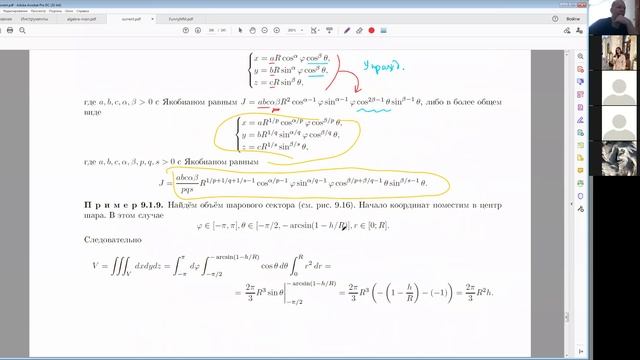 current.pdf - Adobe Acrobat Pro DC (32-bit)
Инструменты
algebra-main.pdf
current.pdf
FunnyMM.pdf
x = aR cos^α φ cos^β θ,
y = bR sin^α φ cos^β θ,
z = cR sin^β θ,
Упражд.
где a, b, c, α, β > 0 с Якобианом равным J = abcαβR² cos^{α−1} φ sin^{α−1} φ cos^{2β−1} θ sin^{β−1} θ, либо в более общем
виде
x = aR^{1/p} cos^{α/p} φ cos^{β/p} θ,
y = bR^{1/q} sin^{α/q} φ cos^{β/q} θ,
z = cR^{1/s} sin^{β/s} θ,
где a, b, c, α, β, p, q, s > 0 с Якобианом равным
J = abcαβ/pqs R^{1/p+1/q+1/s−1} cos^{α/p−1} φ sin^{α/q−1} φ cos^{β/p+β/q−1} θ sin^{β/s−1} θ.
Пример 9.1.9. Найдём объём шарового сектора (см. рис. 9.16). Начало координат поместим в центр
шара. В этом случае
φ ∈ [−π, π], θ ∈ [−π/2, − arcsin(1 − h/R)], r ∈ [0; R].
Следовательно
V = ∭_V dxdydz = ∫_{−π}^{π} dφ ∫_{−π/2}^{− arcsin(1−h/R)} cos θ dθ ∫_0^R r² dr =
= 2π/3 R³ sin θ |_{−π/2}^{− arcsin(1−h/R)} = 2π/3 R³ (−(1 − h/R) − (−1)) = 2π/3 R²h.